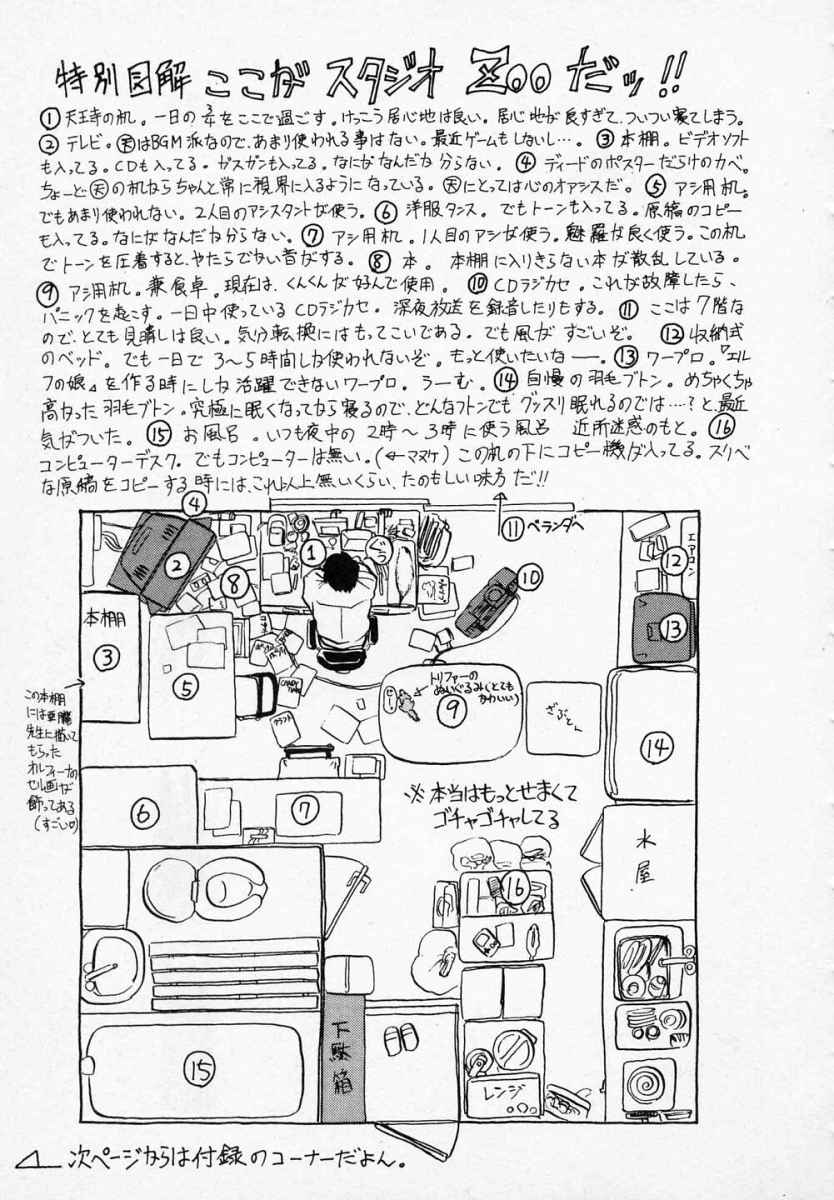 特別図解 ここが スタジオ Zoo だッ!!
①天王寺の机。一日の3/4をここで過ごす。けっこう居心地は良い。居心地が良すぎて、ついつい寝てしまう。
②テレビ。㊝はBGM派なので、あまり使われる事はない。最近ゲームもしないし…。 ③本棚。ビデオソフト
も入ってる。CDも入ってる。ガスガンも入ってる。なにがなんだか分らない。 ④ディードのポスターだらけのカベ。
ちょーど の机からちゃんと常に視界に入るようになっている。 にとっては心のオアシスだ。 ⑤アシ用机。
でもあまり使われない。2人目のアシスタントが使う。⑥洋服タンス。でもトーンも入ってる。原稿のコピー
も入ってる。なにがなんだか分らない。 ⑦アシ用机。1人目のアシが使う。魅羅が良く使う。この机
でトーンを圧着すると、やたらでかい音がする。 ⑧本。 本棚に入りきらない本が散乱している。
⑨アシ用机。兼食卓。現在は、くんくんが好んで使用。 ⑩CDラジカセ。これが故障したら、
パニックを起こす。一日中使っているCDラジカセ。深夜放送を録音したりもする。 ⑪ここは7階な
ので、とても見晴しは良い。気分転換にはもってこいである。でも風がすごいぞ。 ⑫収納式
のベッド。でも一日で3〜5時間しか使われないぞ。もっと使いたいなー。⑬ワープロ。『エル
フの娘』を作る時にしか活躍できないワープロ。うーむ。⑭自慢の羽毛ブトン。めちゃくちゃ
高かった羽毛ブトン。究極に眠くなってから寝るので、どんなフトンでもグッスリ眠れるのでは…?と、最近
気がついた。⑮お風呂。いつも夜中の2時〜3時に使う風呂 近所迷惑のもと。⑯
コンピューターデスク。でもコンピューターは無い。(←マヌケ)この机の下にコピー機が入ってる。スリベ
な原稿をコピーする時には、これ以上無いくらい、たのもしい味方だ!!
④
⑪ベランダへ
①
②
⑧
⑩
エアコン
⑫
⑬
本棚
③
⑤
トリファーの
ぬいぐるみ(とても
かわいい)
⑨
ざぶとん
⑭
この本棚
には亜麗
先生に描いて
もらった
オルフィーナの
セル画が
飾ってある
(すごい♡)
⑥
⑦
※本当はもっとせまくて
ゴチャゴチャしてる
水屋
⑯
下駄箱
⑮
レンジ
次ページからは付録のコーナーだよん。